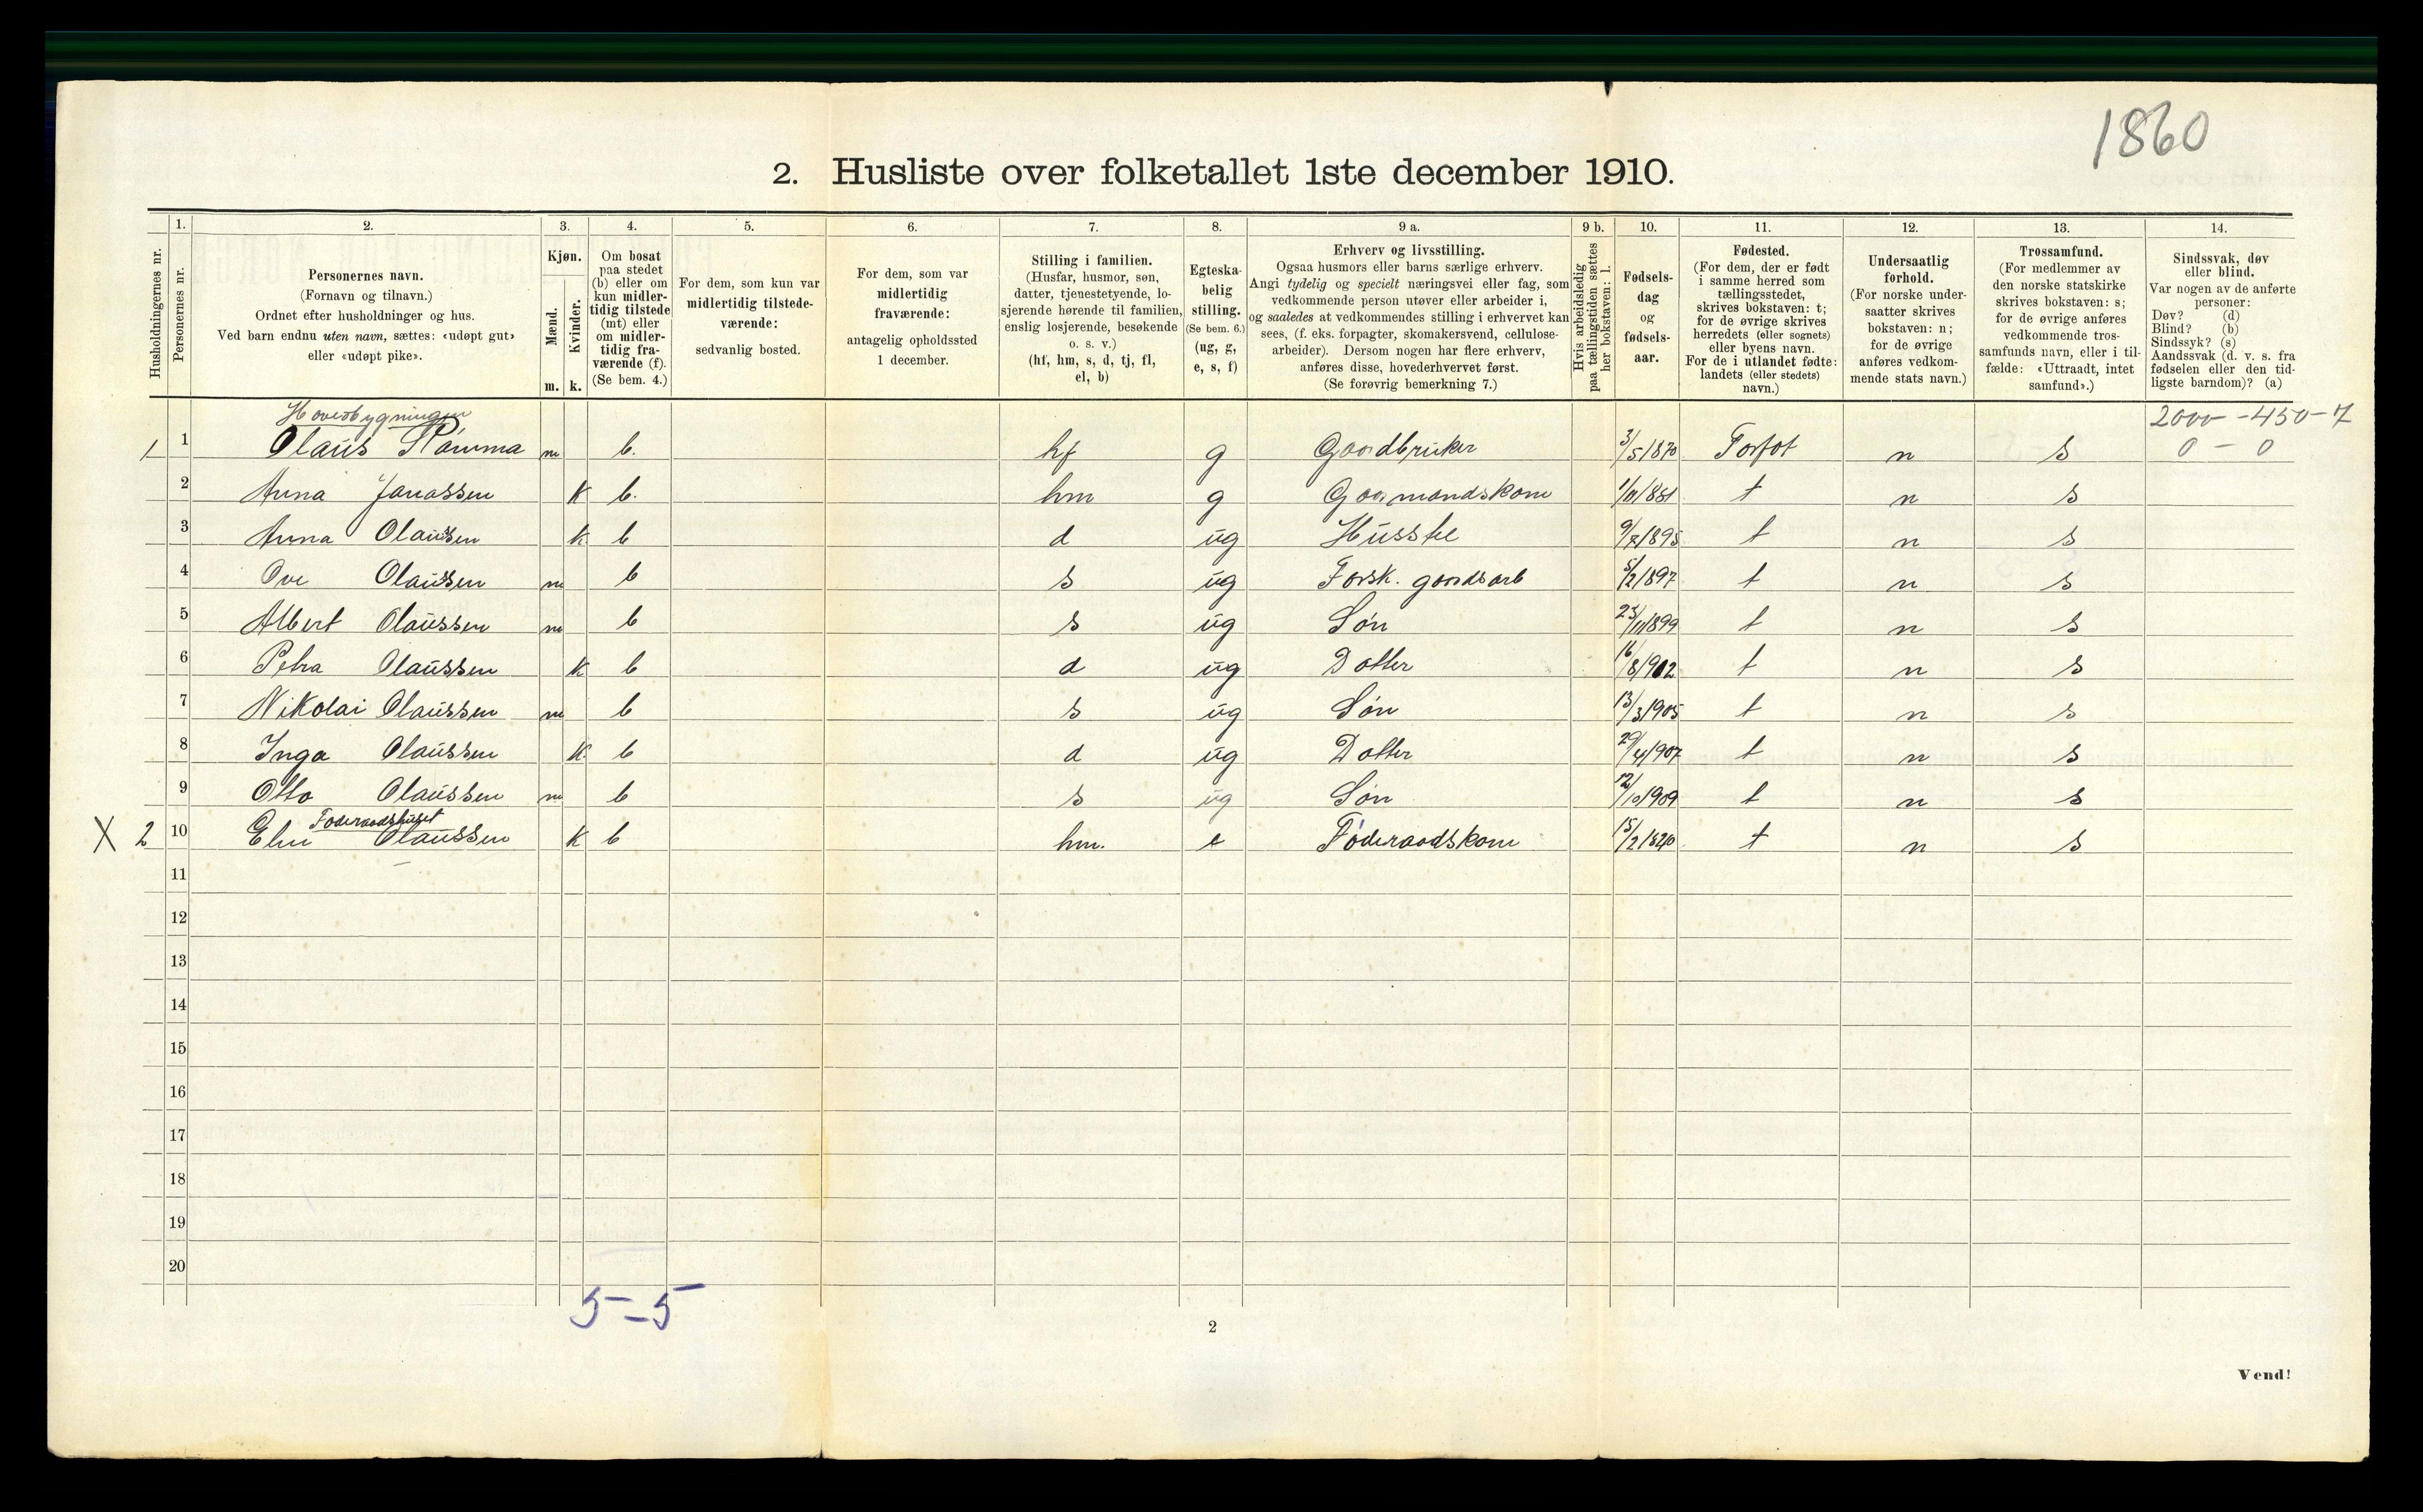 1860
2. Husliste over folketallet 1ste december 1910.
Husholdningernes nr.
1.
Personernes nr.
2.
Personernes navn.
(Fornavn og tilnavn.)
Ordnet efter husholdninger og hus.
Ved barn endnu uten navn, sættes: «udøpt gut»
eller «udøpt pike».
3.
Kjøn.
Mænd.
Kvinder.
m. k.
4.
Om bosat
paa stedet
(b) eller om
kun midler-
tidig tilstede
(mt) eller
om midler-
tidig fra-
værende (f).
(Se bem. 4.)
5.
For dem, som kun var
midlertidig tilstede-
værende:
sedvanlig bosted.
6.
For dem, som var
midlertidig
fraværende:
antagelig opholdssted
1 december.
7.
Stilling i familien.
(Husfar, husmor, søn,
datter, tjenestetyende, lo-
sjerende hørende til familien,
enslig losjerende, besøkende
o. s. v.)
(hf, hm, s, d, tj, fl,
el, b)
8.
Egteska-
belig
stilling.
(Se bem. 6.)
(ug, g,
e, s, f)
9 a.
Erhverv og livsstilling.
Ogsaa husmors eller barns særlige erhverv.
Angi tydelig og specielt næringsvei eller fag, som
vedkommende person utøver eller arbeider i,
og saaledes at vedkommendes stilling i erhvervet kan
sees, (f. eks. forpagter, skomakersvend, cellulose-
arbeider). Dersom nogen har flere erhverv,
anføres disse, hovederhvervet først.
(Se forøvrig bemerkning 7.)
9 b.
Hvis arbeidsledig
paa tællingstiden sættes
her bokstaven: l.
10.
Fødsels-
dag
og
fødsels-
aar.
11.
Fødested.
(For dem, der er født
i samme herred som
tællingsstedet,
skrives bokstaven: t;
for de øvrige skrives
herredets (eller sognets)
eller byens navn.
For de i utlandet fødte:
landets (eller stedets)
navn.)
12.
Undersaatlig
forhold.
(For norske under-
saatter skrives
bokstaven: n;
for de øvrige
anføres vedkom-
mende stats navn.)
13.
Trossamfund.
(For medlemmer av
den norske statskirke
skrives bokstaven: s;
for de øvrige anføres
vedkommende tros-
samfunds navn, eller i til-
fælde: «Uttraadt, intet
samfund».)
14.
Sindssvak, døv
eller blind.
Var nogen av de anførte
personer:
Døv? (d)
Blind? (b)
Sindssyk? (s)
Aandssvak (d. v. s. fra
fødselen eller den tid-
ligste barndom)? (a)
Hovedbygningen
2000 - 450 - 7
1 1 Olaus m b. hf g Gaardbruker 3/5 1870 n s 0 - 0
2 Anna Janassen k b. hm g 1/11 1861 t n s
3 Anna Olaussen k b d ug Husstel 9/7 1895 t n s
4 Ove Olaussen m b s ug Forsk. gaardsarb 5/2 1897 t n s
5 Albert Olaussen m b s ug Søn 25/11 1899 t n s
6 Petra Olaussen k b d ug Datter 16/8 1902 t n s
7 Nikolai Olaussen m b s ug Søn 13/3 1905 t n s
8 Inga Olaussen k b d ug Datter 29/4 1907 t n s
9 Otto Olaussen m b s ug Søn 12/10 1909 t n s
Føderaadshuset
X 2 10 Elen Olaussen k b hm. e Føderaadskone 15/2 1820 t n s
11
12
13
14
15
16
17
18
19
20
5-5
2
Vend!